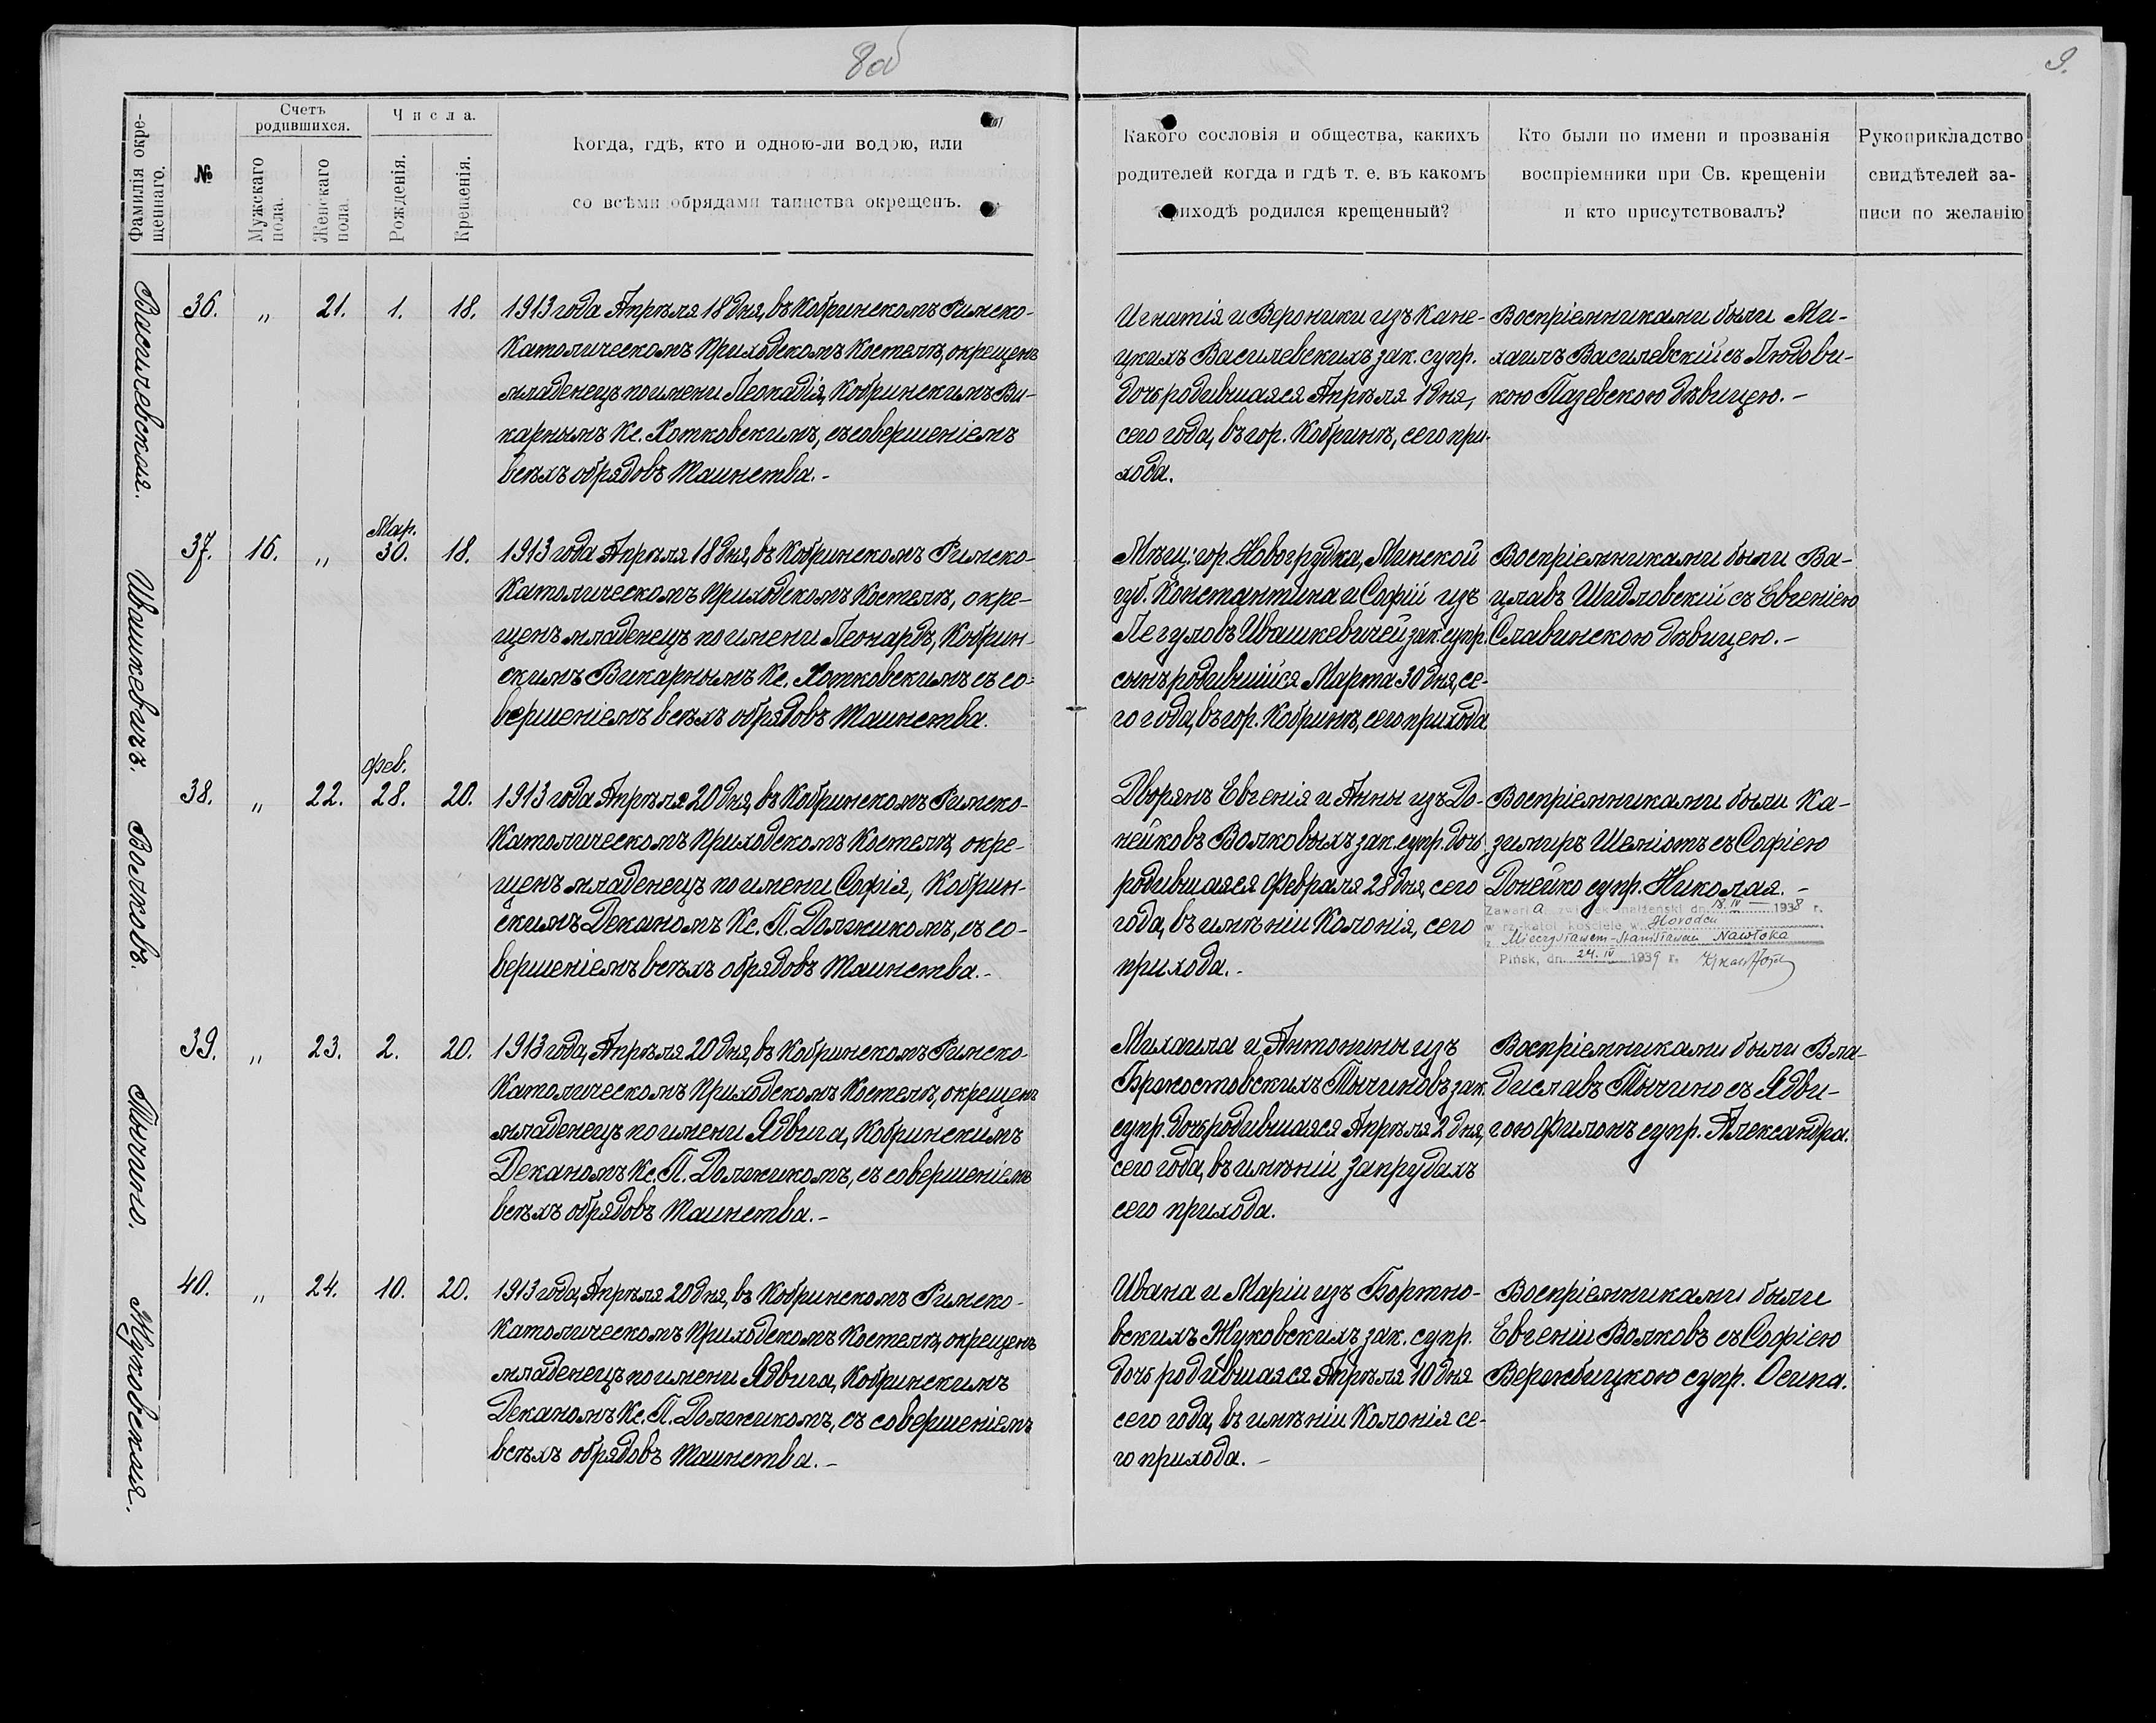 8об
9.
Фамилія окре-
щеннаго.
№
Счетъ
родившихся.
Мужскаго
пола.
Женскаго
пола.
Числа.
Рожденія.
Крещенія.
Когда, гдѣ, кто и одною-ли водою, или
со всѣми обрядами таинства окрещенъ.
Какого сословія и общества, какихъ
родителей когда и гдѣ т. е. въ какомъ
приходѣ родился крещенный?
Кто были по имени и прозванія
воспріемники при Св. крещеніи
и кто присутствовалъ?
Рукоприкладство
свидѣтелей за-
писи по желанію
Василевская.
36. " 21. 1. 18.
1913 года Апрѣля 18 дня, въ Кобринскомъ Римско-
Католическомъ Приходскомъ Костелѣ, окрещенъ
младенецъ по имени Леокадія, Кобринскимъ Ви-
карнымъ Кс. Хотковскимъ, съ совершеніемъ
всѣхъ обрядовъ Таинства.-
Игнатія и Вероники изъ Кане-
цкихъ Василевскихъ зак. супр.
дочь родившаяся Апрѣля 1 дня,
сего года, въ гор. Кобринѣ, сего при-
хода.
Воспріемниками были Ми-
хаилъ Василевскій съ Людови-
кою Пазевскою дѣвицею.-
Ивашкевичъ.
37. 16. " Мар. 30. 18.
1913 года Апрѣля 18 дня, въ Кобринскомъ Римско-
Католическомъ Приходскомъ Костелѣ, окре-
щенъ младенецъ по имени Леонардъ, Кобрин-
скимъ Викарнымъ Кс. Хотковскимъ съ со-
вершеніемъ всѣхъ обрядовъ Таинства.
Мѣщ. гор. Новогрудка, Минской
губ. Константина и Софіи изъ
Легуловъ Ивашкевичей зак. супр.
сынъ родившійся Марта 30 дня, се-
го года, въ гор. Кобринѣ, сего прихода
Воспріемниками были Ва-
цлавъ Шидловскій съ Евгеніею
Славинскою дѣвицею.-
Волковъ.
38. " 22. Фев. 28. 20.
1913 года Апрѣля 20 дня, въ Кобринскомъ Римско-
Католическомъ Приходскомъ Костелѣ, окре-
щенъ младенецъ по имени Софія, Кобрин-
скимъ Деканомъ Кс. П. Должикомъ, съ со-
вершеніемъ всѣхъ обрядовъ Таинства.-
Дворянъ Евгенія и Анны изъ До-
нейковъ Волковыхъ зак. супр. дочь
родившаяся Февраля 28 дня, сего
года, въ имѣніи Колонія, сего
прихода.-
Воспріемниками были Ка-
зимиръ Шеміотъ съ Софіею
Донейко супр. Николая.-
Zawarła związek małżeński dn. 18.IV 1938 r.
w rz.-katol. kościele w Horodcu
z Mieczysławem-Stanisławem Nawłoka
Pińsk, dn. 24.IV 1939 r.
Тычино.
39. " 23. 2. 20.
1913 года, Апрѣля 20 дня, въ Кобринскомъ Римско-
Католическомъ Приходскомъ Костелѣ, окрещенъ
младенецъ по имени Ядвига, Кобринскимъ
Деканомъ Кс. П. Должикомъ, съ совершеніемъ
всѣхъ обрядовъ Таинства.-
Михаила и Антонины изъ
Бржостовскихъ Тычиновъ зак.
супр. дочь родившаяся Апрѣля 2 дня,
сего года, въ имѣніи Запрудахъ
сего прихода.
Воспріемниками были Вла-
диславъ Тычино съ Ядви-
гою Филонъ супр. Александра.
Жуковская.
40. " 24. 10. 20.
1913 года, Апрѣля 20 дня, въ Кобринскомъ Римско-
Католическомъ Приходскомъ Костелѣ, окрещенъ
младенецъ по имени Ядвига, Кобринскимъ
Деканомъ Кс. П. Должикомъ, съ совершеніемъ
всѣхъ обрядовъ Таинства.-
Ивана и Маріи изъ Бортно-
вскихъ Жуковскихъ зак. супр.
дочь родившаяся Апрѣля 10 дня
сего года, въ имѣніи Колонія се-
го прихода.-
Воспріемниками были
Евгеніи Волковъ съ Софіею
Вержбицкою супр. Осипа.